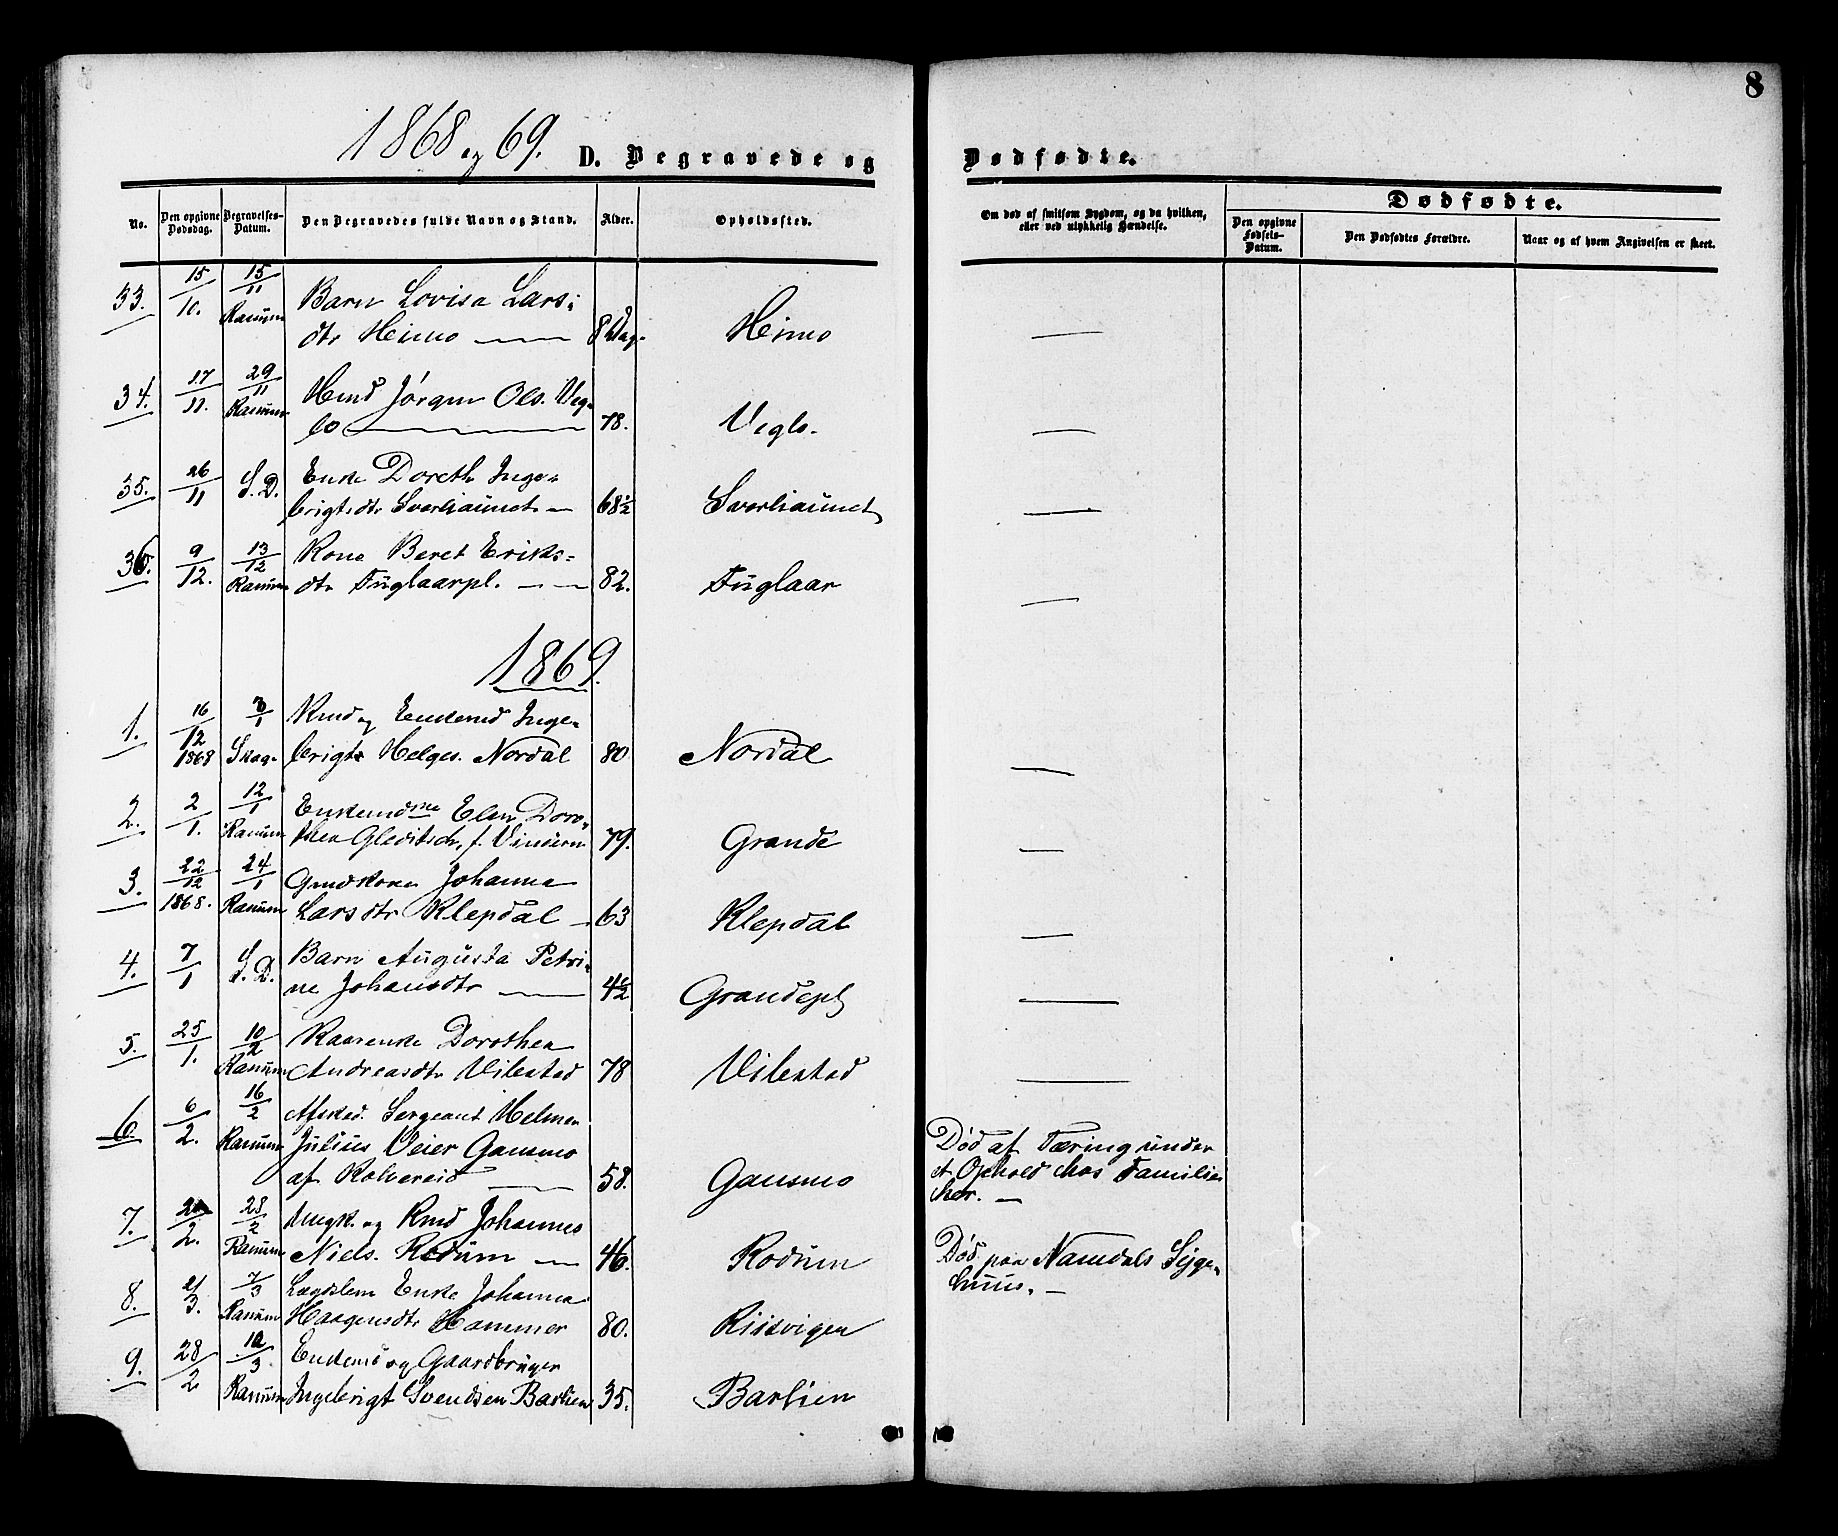 8
1868 og 69. D. Begravede og Dødfødte.
No. Den opgivne Dødsdag. Begravelses-Datum. Den Begravedes fulde Navn og Stand. Alder. Opholdssted. Om død af smitsom Sygdom, og da hvilken, eller ved ulykkelig Hændelse. Dødfødte.
Den opgivne Fødsels-Datum. Den Dødfødtes Forældre. Naar og af hvem Angivelsen er skeet.
33. 15/10. 15/11 Ranum Barn Lovisa Lars-
dtr Heimo 8 Dag. Heimo
34. 17/11. 29/11 Ranum Kmd Jørgen Ols. Veg-
lo 78. Veglo.
35. 26/11 S. D. Enke Doreth Inge-
brigtsdtr Sverliaunet 68½ Sverliaunet
36. 9/12. 13/12 Ranum Kone Beret Eriks-
dtr Fuglaarpl. 82. Fuglaar
1869.
1. 16/12 1868 3/1 Skog. Kmd og Enkemd Inge-
brigt Helges. Nordal 80 Nordal
2. 2/1. 12/1 Ranum Enkemdme Elen Doro-
thea Gleditsch, f. Vindern 79. Grande
3. 22/12 1868. 24/1 Ranum Gmdkone Johanna
Larsdtr Klepdal 63 Klepdal
4. 7/1 S. D. Barn Augusta Petri-
ne Johansdtr 4½ Grandepl
5. 25/1. 10/2 Ranum Kaarenke Dorothea
Andreasdtr Vibestad 78 Vibestad
6. 6/2. 16/2 Ranum Afsked. Sergeant Helmer
Julius Veier Gansmo
af Kolvereid 58. Gansmo
Død af Tæring under
et Ophold hos Familie
her.
7. 2/2. 28/2 Ranum Ungk. og Kmd Johannes
Niels. Rodum 46. Rodum
Død paa Namdals Syge-
huus.
8. 2/3. 7/3 Ranum Lægdslem Enke Johanna
Haagensdtr Hammer 80. Riisvigen
9. 28/2 12/3. Ranum Enkemd og Gaardbruger
Ingebrigt Svendsen Barlien 35. Barlien